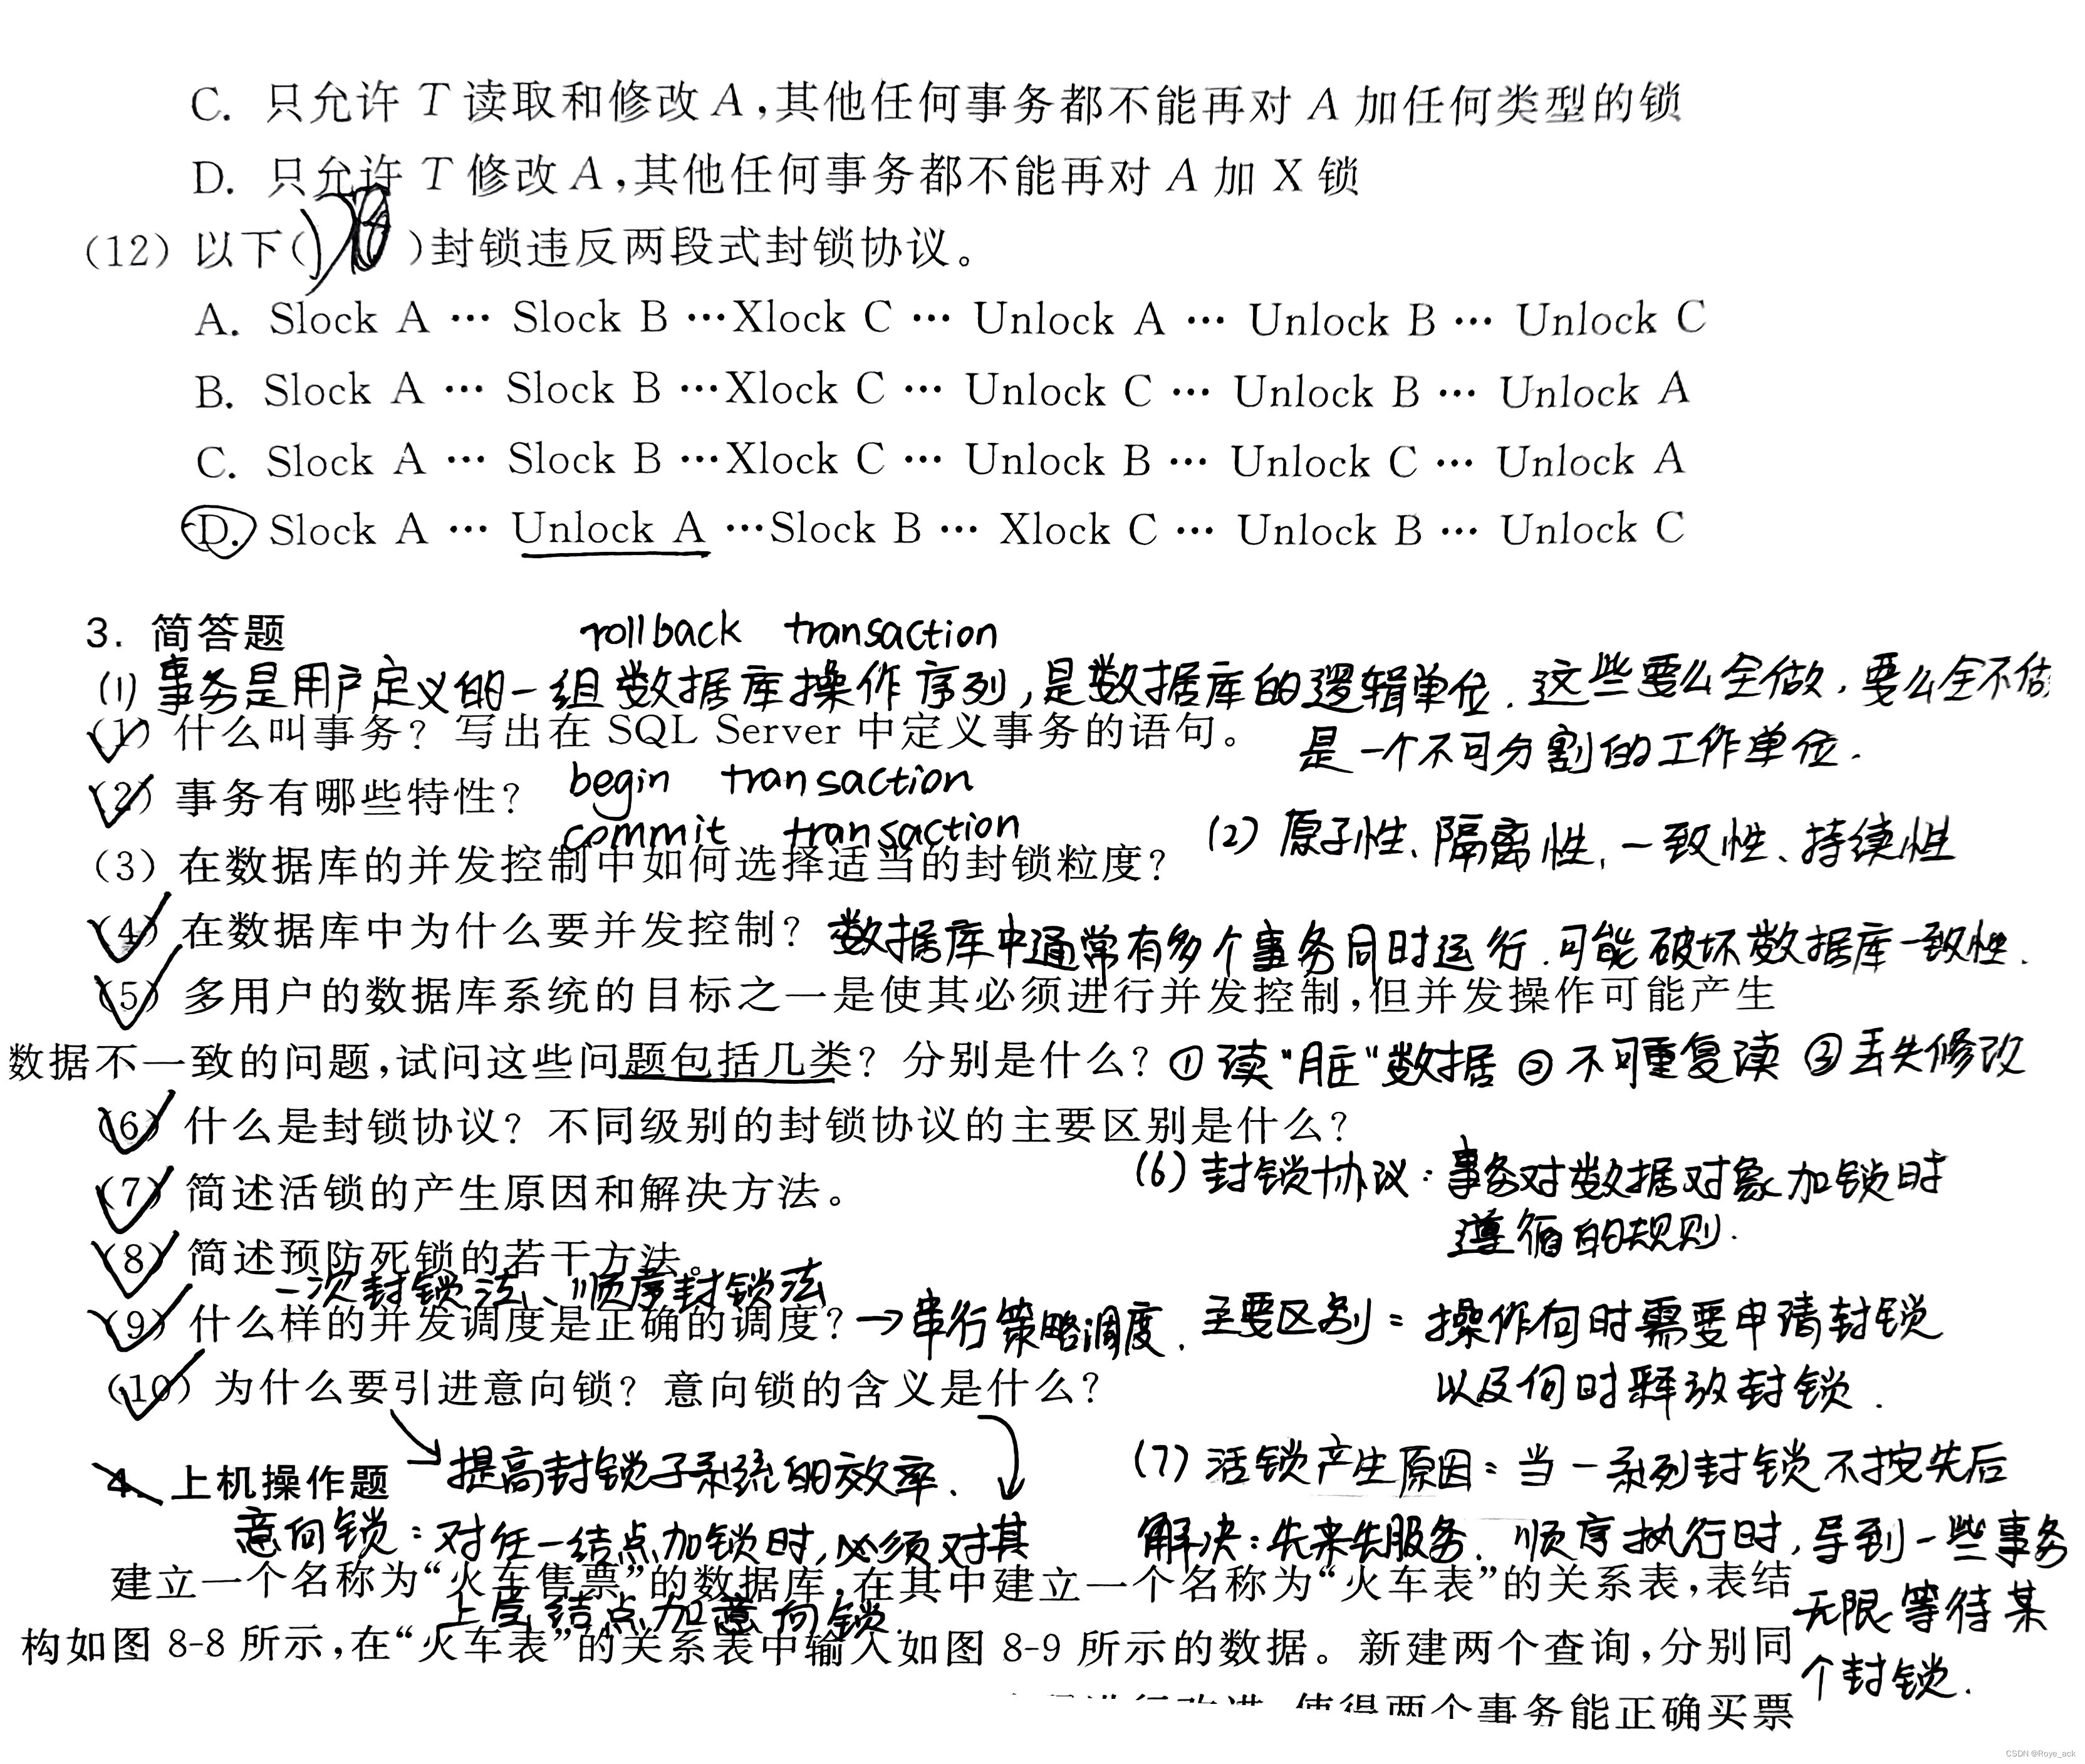 C. 只允许 T 读取和修改 A,其他任何事务都不能再对 A 加任何类型的锁
D. 只允许 T 修改 A,其他任何事务都不能再对 A 加 X 锁
(12) 以下( )封锁违反两段式封锁协议。
A. Slock A … Slock B …Xlock C … Unlock A … Unlock B … Unlock C
B. Slock A … Slock B …Xlock C … Unlock C … Unlock B … Unlock A
C. Slock A … Slock B …Xlock C … Unlock B … Unlock C … Unlock A
D. Slock A … Unlock A …Slock B … Xlock C … Unlock B … Unlock C
3. 简答题
rollback transaction
(1) 事务是用户定义的一组数据库操作序列,是数据库的逻辑单位.这些要么全做,要么全不做
(1) 什么叫事务? 写出在 SQL Server 中定义事务的语句。
是一个不可分割的工作单位.
(2) 事务有哪些特性?
begin transaction
commit transaction
(2) 原子性、隔离性、一致性、持续性
(3) 在数据库的并发控制中如何选择适当的封锁粒度?
(4) 在数据库中为什么要并发控制? 数据库中通常有多个事务同时运行.可能破坏数据库一致性.
(5) 多用户的数据库系统的目标之一是使其必须进行并发控制,但并发操作可能产生
数据不一致的问题,试问这些问题包括几类? 分别是什么? ①读"脏"数据 ②不可重复读 ③丢失修改
(6) 什么是封锁协议? 不同级别的封锁协议的主要区别是什么?
(6) 封锁协议:事务对数据对象加锁时
遵循的规则.
(7) 简述活锁的产生原因和解决方法。
(8) 简述预防死锁的若干方法。
一次封锁法、顺序封锁法
(9) 什么样的并发调度是正确的调度? →串行策略调度.
主要区别:操作何时需要申请封锁
以及何时释放封锁.
(10) 为什么要引进意向锁? 意向锁的含义是什么?
提高封锁子系统的效率.
(7) 活锁产生原因:当一系列封锁不按先后
4. 上机操作题
意向锁:对任一结点加锁时,必须对其
上层结点加意向锁.
解决:先来先服务.
顺序执行时,导到一些事务
无限等待某
个封锁.
建立一个名称为“火车售票”的数据库,在其中建立一个名称为“火车表”的关系表,表结
构如图 8-8 所示,在“火车表”的关系表中输入如图 8-9 所示的数据。新建两个查询,分别同
进行改进,使得两个事务能正确买票
CSDN @Roye_ack